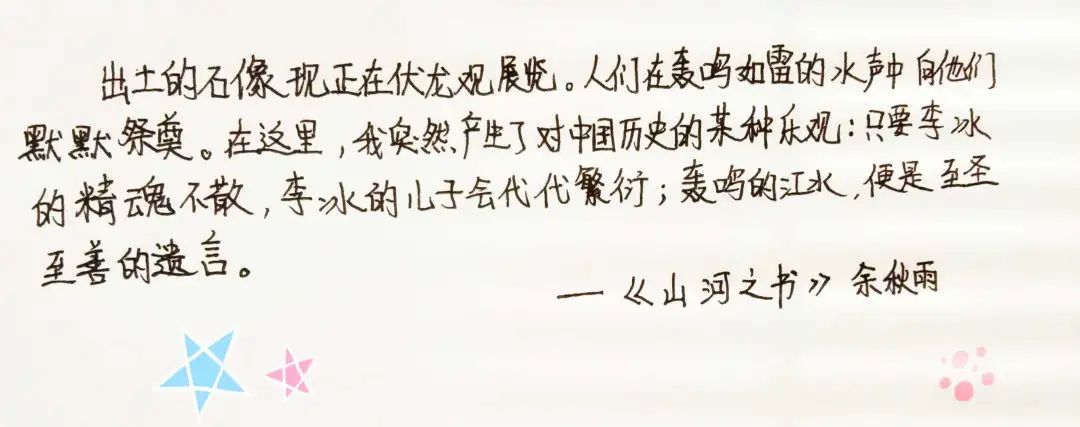 出土的石像现正在伏龙观展览。人们在轰鸣如雷的水声中自他们
默默祭奠。在这里,我突然产生了对中国历史的某种乐观:只要李冰
的精魂不散,李冰的儿子会代代繁衍;轰鸣的江水,便是至圣
至善的遗言。
—《山河之书》余秋雨